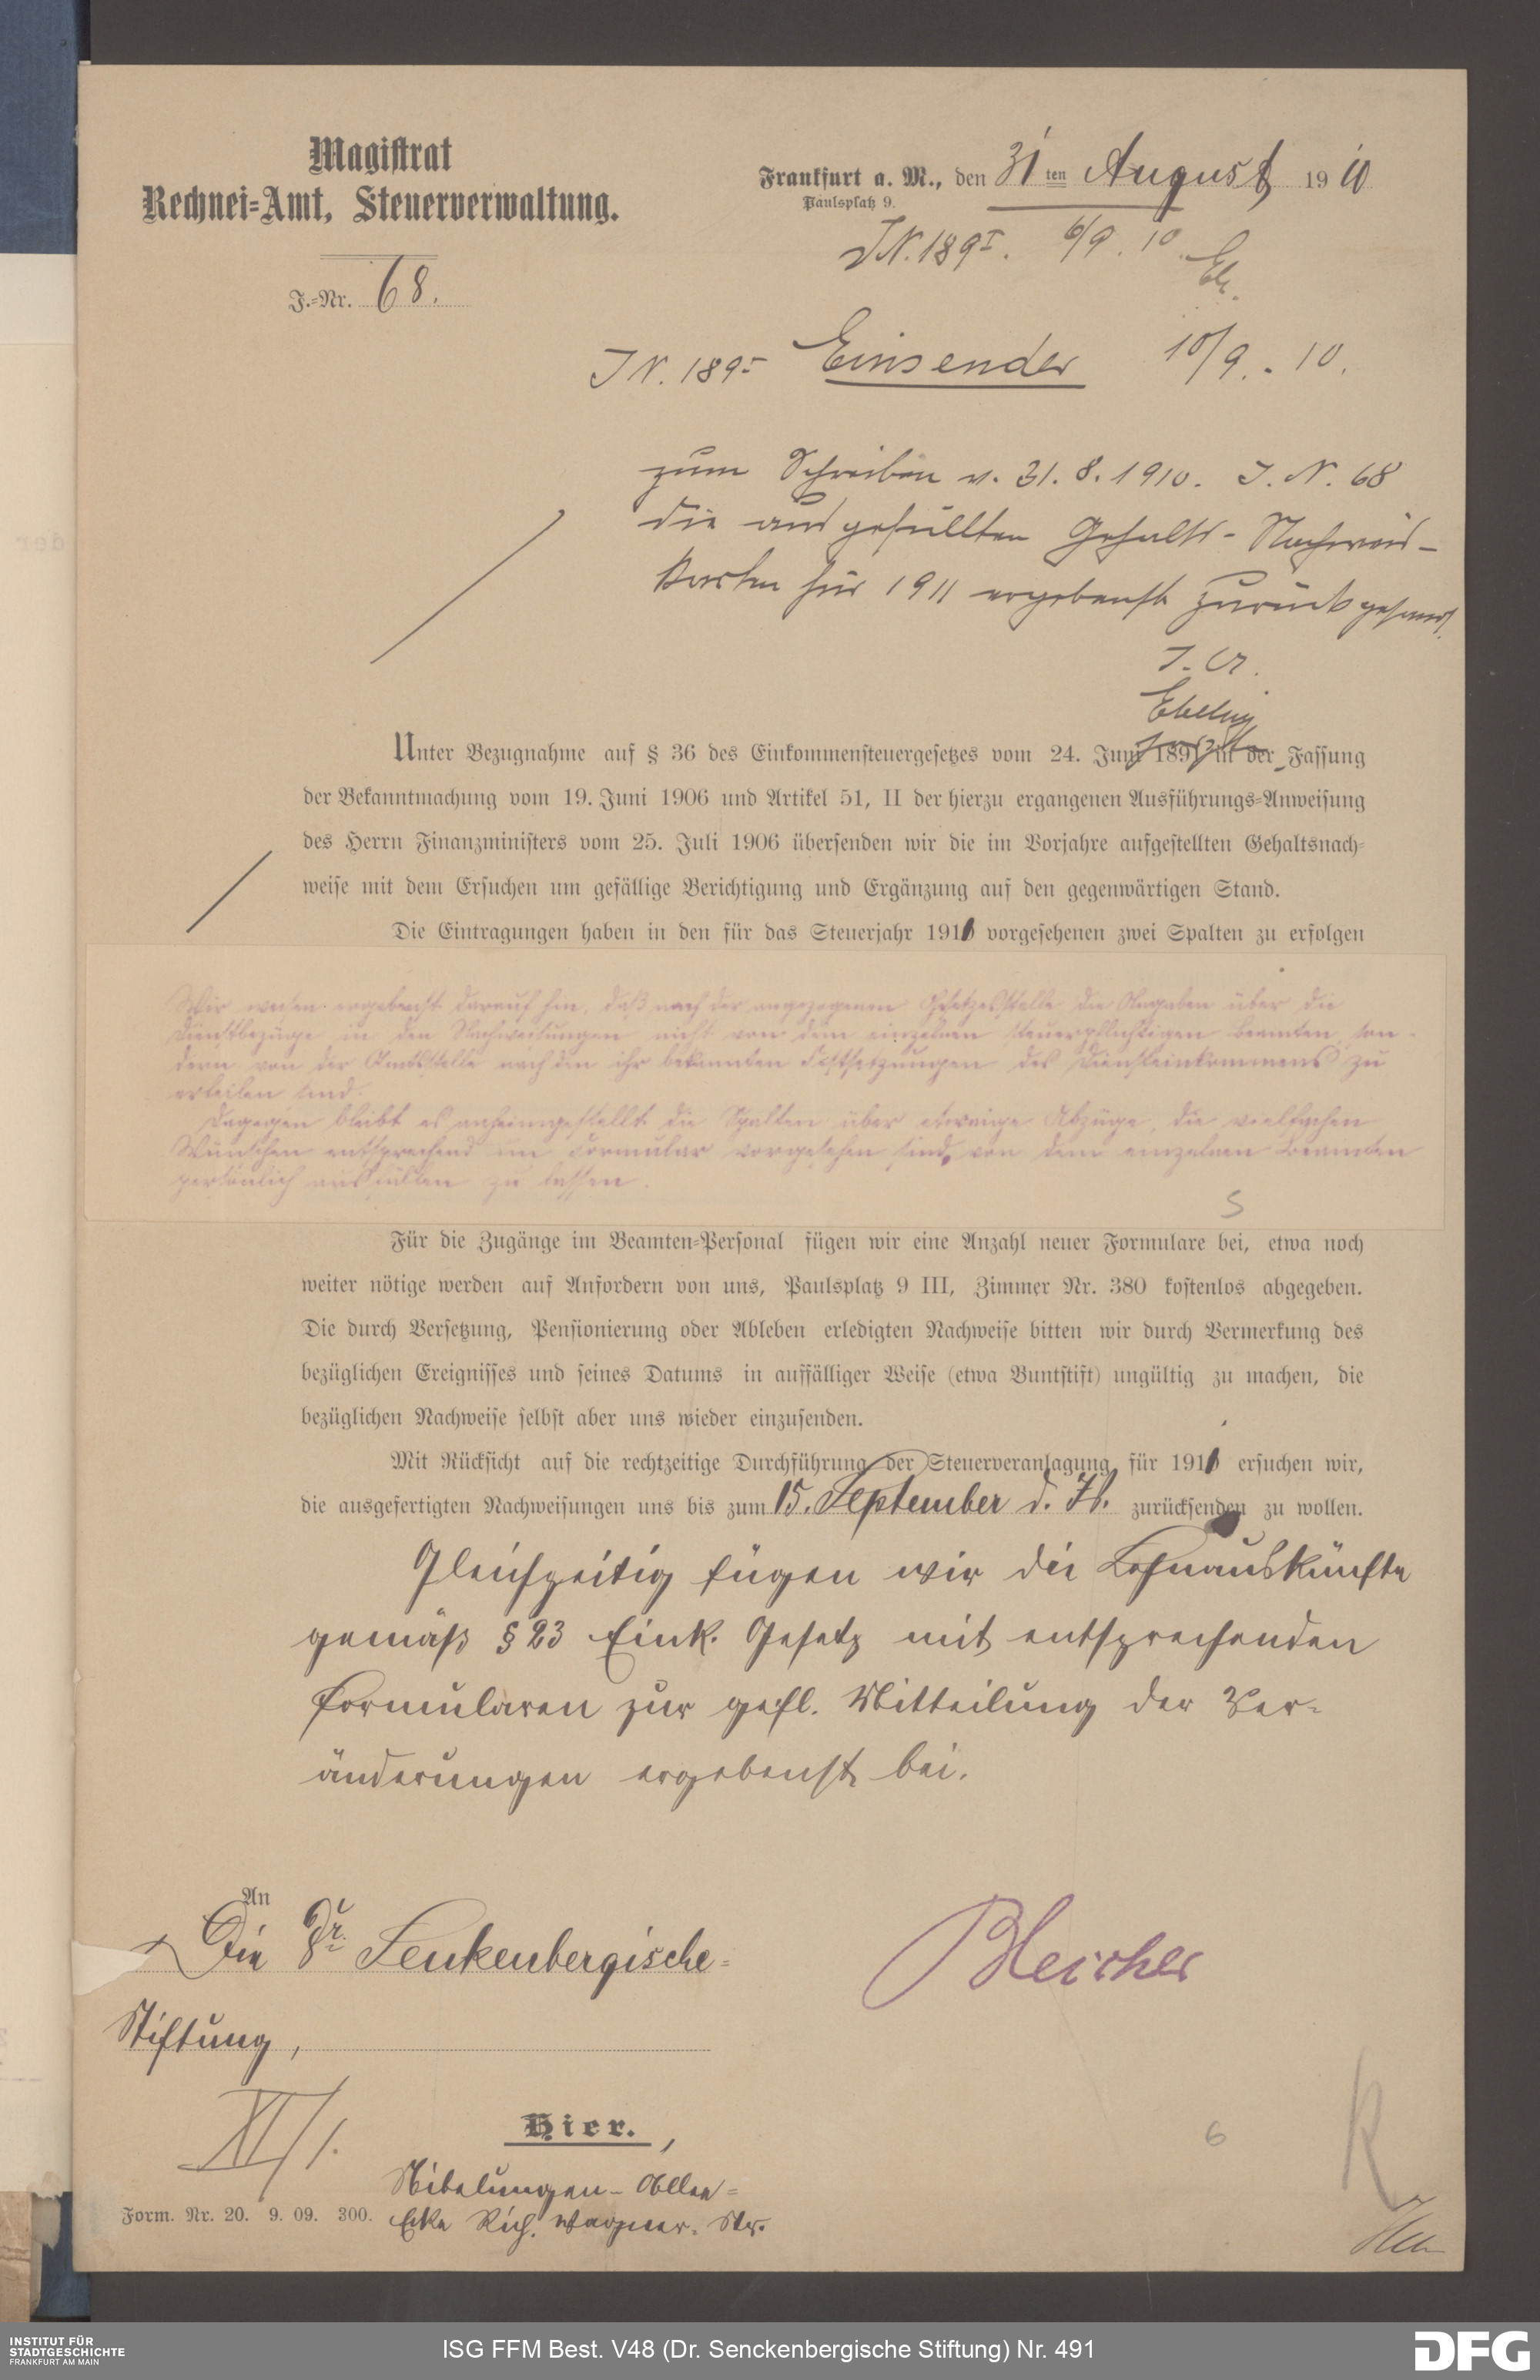 Magistrat
Rechnei-Amt, Steuerverwaltung.
J.-Nr. 68.
Frankfurt a. M., den 31ten August 1910
Paulsplatz 9.
JN. 189I. 6/9. 10.
JN. 189I Einsender 10/9. 10.
zum Schreiben v. 31. 8. 1910. J. N. 68
die ausgefüllten Gehalts-Nachweis-
karten für 1911 ergebenst zurückgesandt.
J. A.
Ebeling
Unter Bezugnahme auf § 36 des Einkommensteuergesetzes vom 24. Juni 1891 in der Fassung
der Bekanntmachung vom 19. Juni 1906 und Artikel 51, II der hierzu ergangenen Ausführungs-Anweisung
des Herrn Finanzministers vom 25. Juli 1906 übersenden wir die im Vorjahre aufgestellten Gehaltsnach-
weise mit dem Ersuchen um gefällige Berichtigung und Ergänzung auf den gegenwärtigen Stand.
Die Eintragungen haben in den für das Steuerjahr 1911 vorgesehenen zwei Spalten zu erfolgen
Wir weisen ergebenst darauf hin, daß nach der angezogenen Gesetzesstelle die Angaben über die
Dienstbezüge in den Nachweisungen nicht von dem einzelnen steuerpflichtigen Beamten, son-
dern von der Amtsstelle nach den ihr bekannten Festsetzungen des Diensteinkommens zu
erteilen sind.
Dagegen bleibt es anheimgestellt die Spalten über etwaige Abzüge, die vielfachen
Wünschen entsprechend im Formular vorgesehen sind, von dem einzelnen Beamten
persönlich ausfüllen zu lassen.
5
Für die Zugänge im Beamten-Personal fügen wir eine Anzahl neuer Formulare bei, etwa noch
weiter nötige werden auf Anfordern von uns, Paulsplatz 9 III, Zimmer Nr. 380 kostenlos abgegeben.
Die durch Versetzung, Pensionierung oder Ableben erledigten Nachweise bitten wir durch Vermerkung des
bezüglichen Ereignisses und seines Datums in auffälliger Weise (etwa Buntstift) ungültig zu machen, die
bezüglichen Nachweise selbst aber uns wieder einzusenden.
Mit Rücksicht auf die rechtzeitige Durchführung der Steuerveranlagung für 1911 ersuchen wir,
die ausgefertigten Nachweisungen uns bis zum 15. September d. Js. zurücksenden zu wollen.
Gleichzeitig fügen wir die Lohnauskünfte
gemäß § 23 Eink. Gesetz mit entsprechenden
Formularen zur gefl. Mitteilung der Ver-
änderungen ergebenst bei.
An
Die Dr. Senkenbergische-
Stiftung,
Bleicher
XI/1.
Hier.,
Nibelungen-Allee-
Ecke Rich. Wagner-Str.
6
R
Form. Nr. 20. 9. 09. 300.
INSTITUT FÜR
STADTGESCHICHTE
FRANKFURT AM MAIN
ISG FFM Best. V48 (Dr. Senckenbergische Stiftung) Nr. 491
DFG